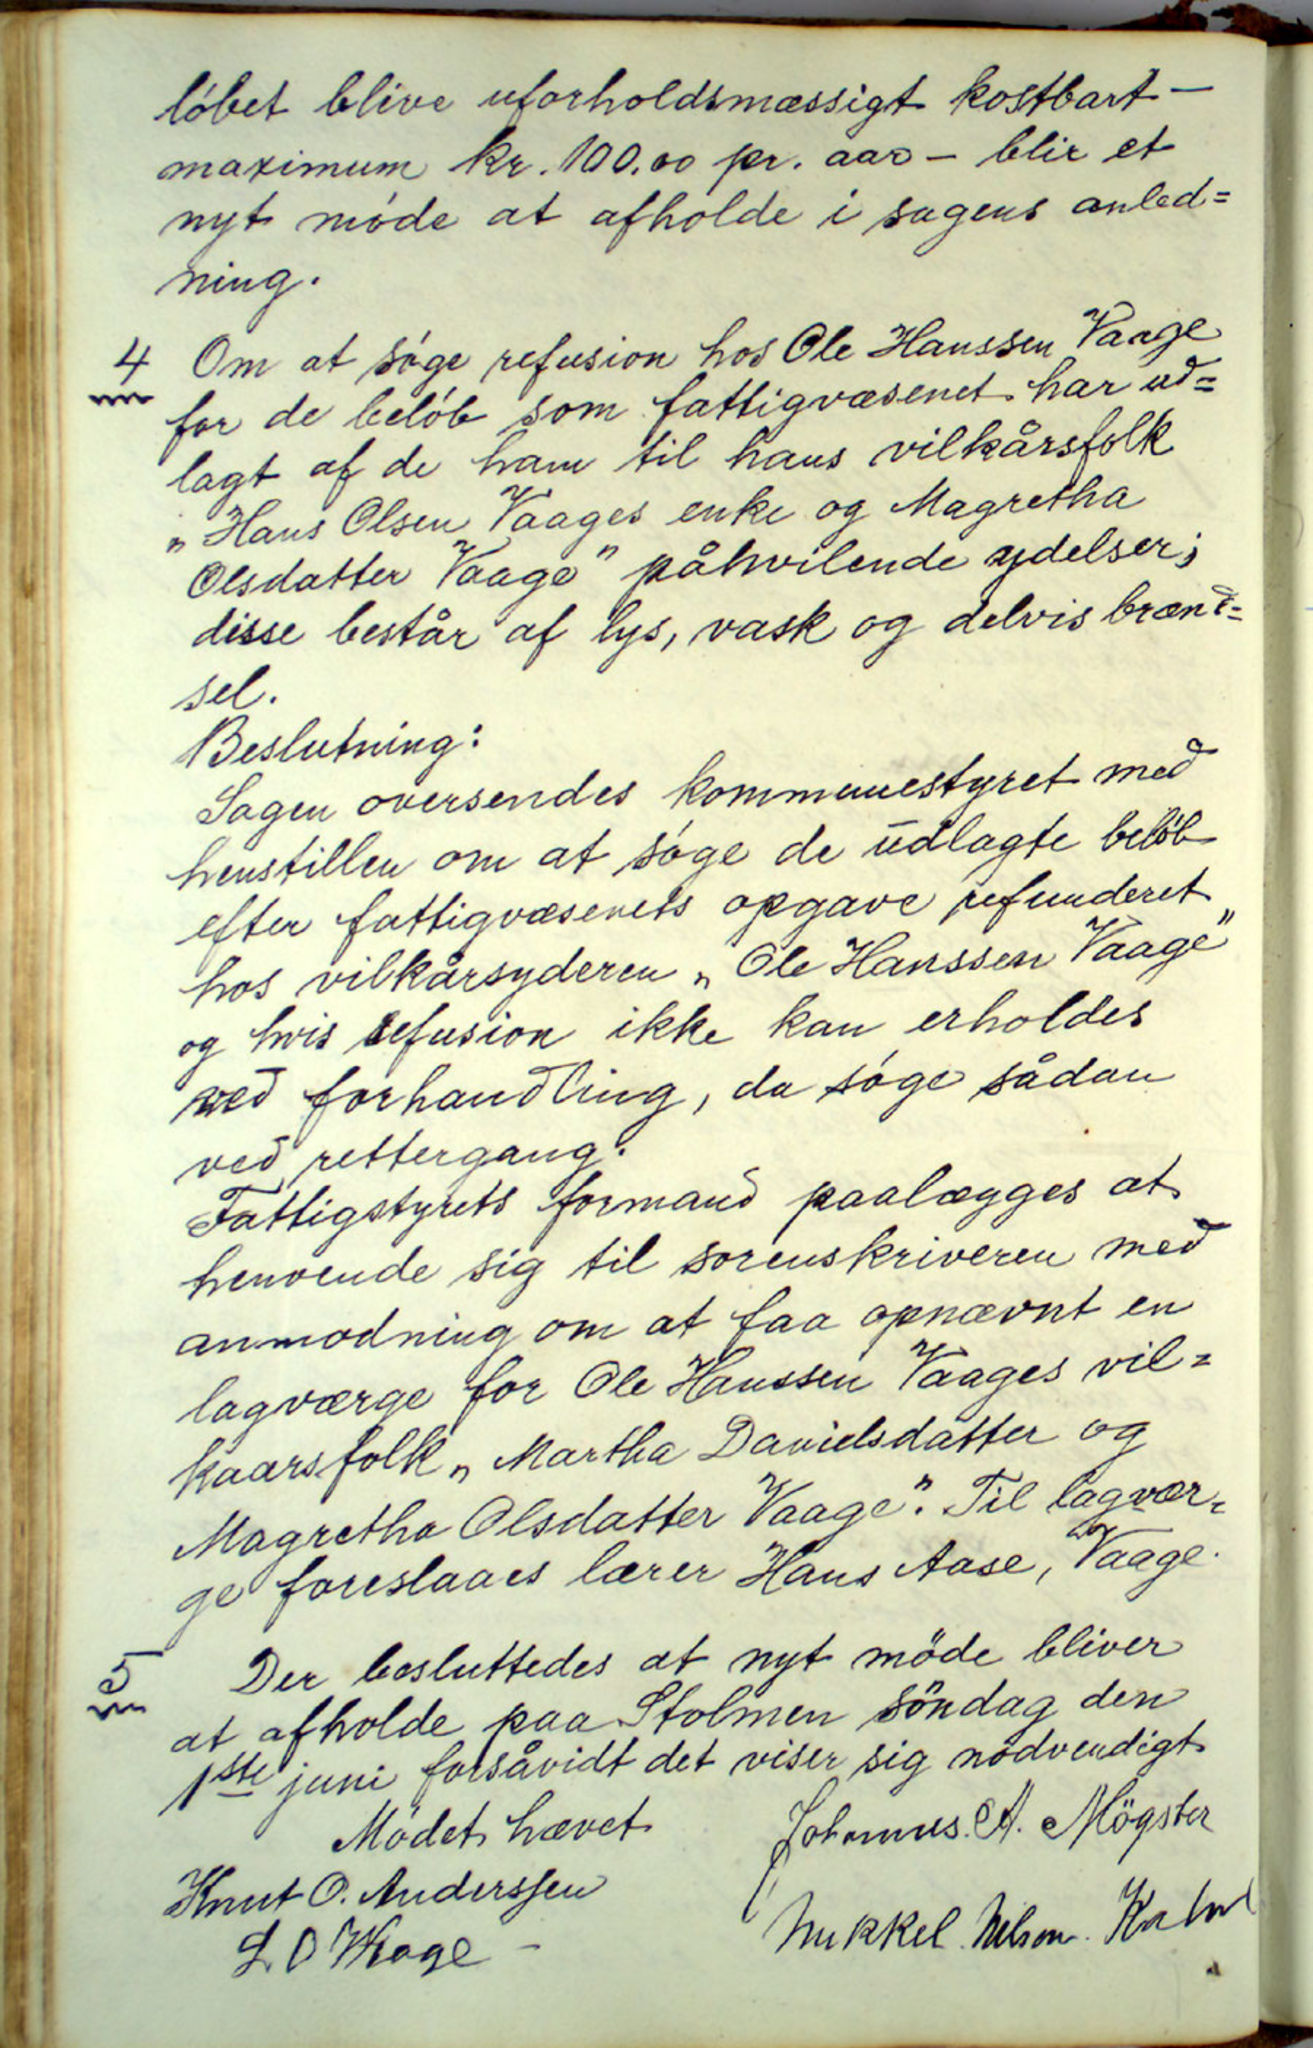 løbet blive uforholdsmæssigt kostbart –
maximum kr. 100.00 pr. aar – blir et
nyt møde at afholde i sagens anled=
ning.
4 Om at søge refusion hos Ole Hanssen Vaage
for de beløb som fattigvæsenet har ud=
lagt af de ham til hans vilkårsfolk
„Hans Olsen Vaages enke og Magretha
Olsdatter Vaage" påhvilende ydelser;
disse består af lys, vask og delvis brænd=
sel.
Beslutning:
Sagen oversendes kommunestyret med
henstillen om at søge de udlagte beløb
efter fattigvæsenets opgave refunderet
hos vilkårsyderen „Ole Hanssen Vaage"
og hvis refusion ikke kan erholdes
ved forhandling, da søge sådan
ved rettergang.
Fattigstyrets formand paalægges at
henvende sig til sorenskriveren med
anmodning om at faa opnævnt en
lagværge for Ole Hanssen Vaages vil=
kaarsfolk „Martha Davidsdatter og
Magretha Olsdatter Vaage". Til lagvær=
ge foreslaaes lærer Hans Aase, Vaage.
5 Der besluttedes at nyt møde bliver
at afholde paa Stolmen söndag den
1ste juni forsåvidt det viser sig nødvendigt
Mødet hævet
Johannus. A. Mögster
Knut O. Anderssen
Mikkel Nelson
L O Waage –